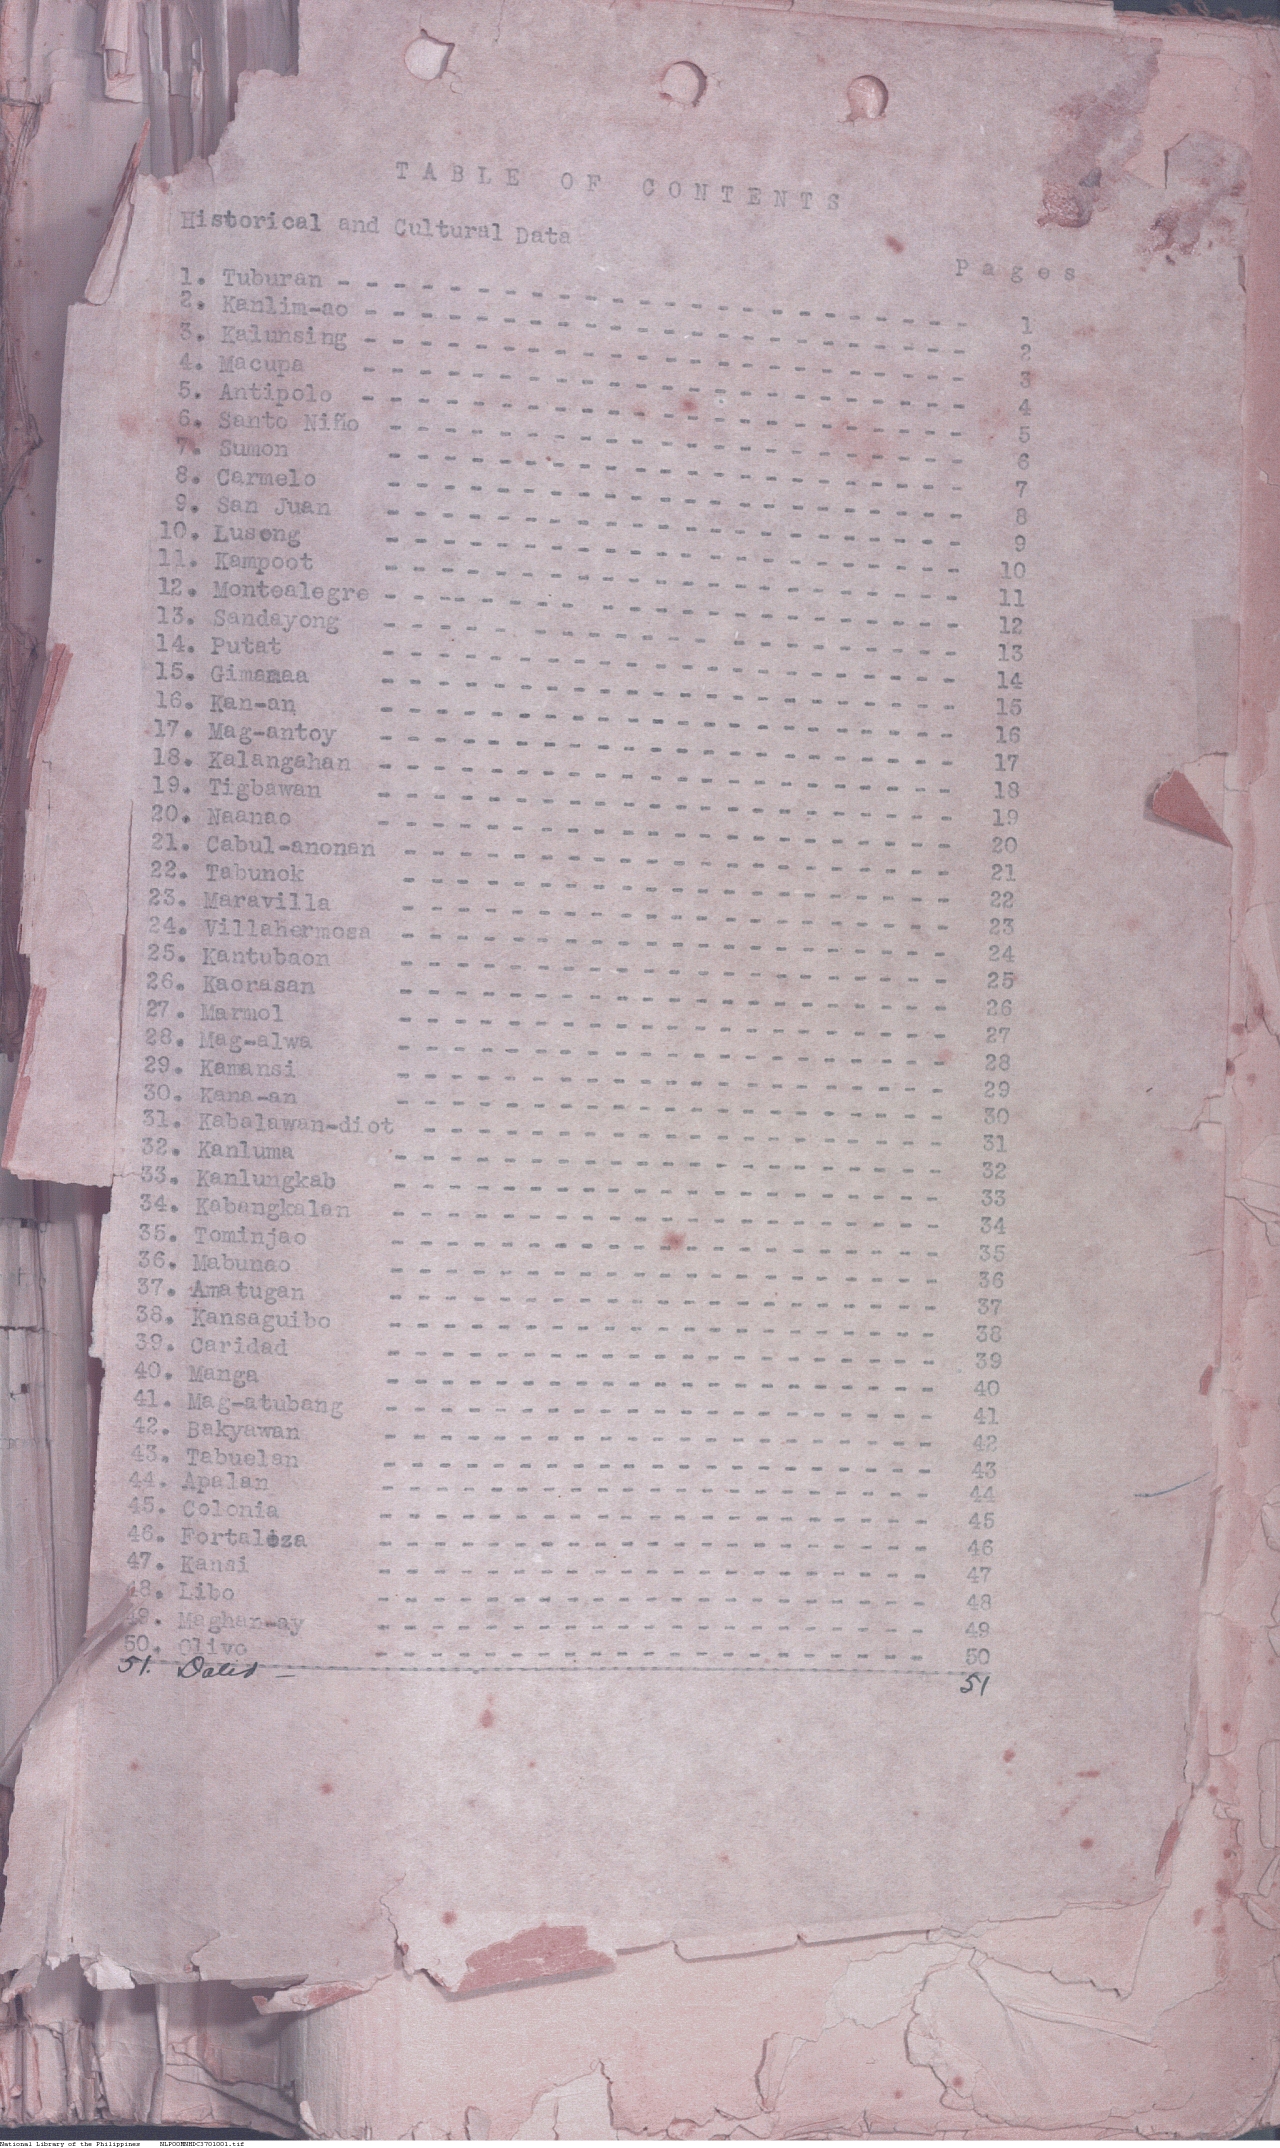 TABLE OF CONTENTS
Historical and Cultural Data
Pages
1. Tuburan - - - - - - - - - - - - - - - - - - - - - - 1
2. Kanlim-ao - - - - - - - - - - - - - - - - - - - - - 2
3. Kalunsing - - - - - - - - - - - - - - - - - - - - - 3
4. Macupa - - - - - - - - - - - - - - - - - - - - - 4
5. Antipolo - - - - - - - - - - - - - - - - - - - - - 5
6. Santo Niño - - - - - - - - - - - - - - - - - - - - 6
7. Sumon - - - - - - - - - - - - - - - - - - - - 7
8. Carmelo - - - - - - - - - - - - - - - - - - - - 8
9. San Juan - - - - - - - - - - - - - - - - - - - - 9
10. Lusong - - - - - - - - - - - - - - - - - - - - 10
11. Kampoot - - - - - - - - - - - - - - - - - - - - 11
12. Montealegre - - - - - - - - - - - - - - - - - - - - 12
13. Sandayong - - - - - - - - - - - - - - - - - - - - 13
14. Putat - - - - - - - - - - - - - - - - - - - - 14
15. Gimamaa - - - - - - - - - - - - - - - - - - - - 15
16. Kan-an - - - - - - - - - - - - - - - - - - - - 16
17. Mag-antoy - - - - - - - - - - - - - - - - - - - - 17
18. Kalangahan - - - - - - - - - - - - - - - - - - - - 18
19. Tigbawan - - - - - - - - - - - - - - - - - - - - 19
20. Naanao - - - - - - - - - - - - - - - - - - - - 20
21. Cabul-anonan - - - - - - - - - - - - - - - - - - - 21
22. Tabunok - - - - - - - - - - - - - - - - - - - 22
23. Maravilla - - - - - - - - - - - - - - - - - - - 23
24. Villahermosa - - - - - - - - - - - - - - - - - - - 24
25. Kantubaon - - - - - - - - - - - - - - - - - - - 25
26. Kaorasan - - - - - - - - - - - - - - - - - - - 26
27. Marmol - - - - - - - - - - - - - - - - - - - 27
28. Mag-alwa - - - - - - - - - - - - - - - - - - - 28
29. Kamansi - - - - - - - - - - - - - - - - - - - 29
30. Kana-an - - - - - - - - - - - - - - - - - - - 30
31. Kabalawan-diot - - - - - - - - - - - - - - - - - - 31
32. Kanluma - - - - - - - - - - - - - - - - - - - 32
33. Kanlungkab - - - - - - - - - - - - - - - - - - - 33
34. Kabangkalan - - - - - - - - - - - - - - - - - - - 34
35. Tominjao - - - - - - - - - - - - - - - - - - - 35
36. Mabunao - - - - - - - - - - - - - - - - - - - 36
37. Amatugan - - - - - - - - - - - - - - - - - - - 37
38. Kansaguibo - - - - - - - - - - - - - - - - - - - 38
39. Caridad - - - - - - - - - - - - - - - - - - - 39
40. Manga - - - - - - - - - - - - - - - - - - - 40
41. Mag-atubang - - - - - - - - - - - - - - - - - - - 41
42. Bakyawan - - - - - - - - - - - - - - - - - - - 42
43. Tabuelan - - - - - - - - - - - - - - - - - - - 43
44. Apalan - - - - - - - - - - - - - - - - - - - 44
45. Colonia - - - - - - - - - - - - - - - - - - - 45
46. Fortaleza - - - - - - - - - - - - - - - - - - - 46
47. Kansi - - - - - - - - - - - - - - - - - - - 47
48. Libo - - - - - - - - - - - - - - - - - - - 48
49. Maghan-ay - - - - - - - - - - - - - - - - - - - 49
50. Olivo - - - - - - - - - - - - - - - - - - - 50
51. - 51
National Library of the Philippines NLPOORNHDC3701001.tif